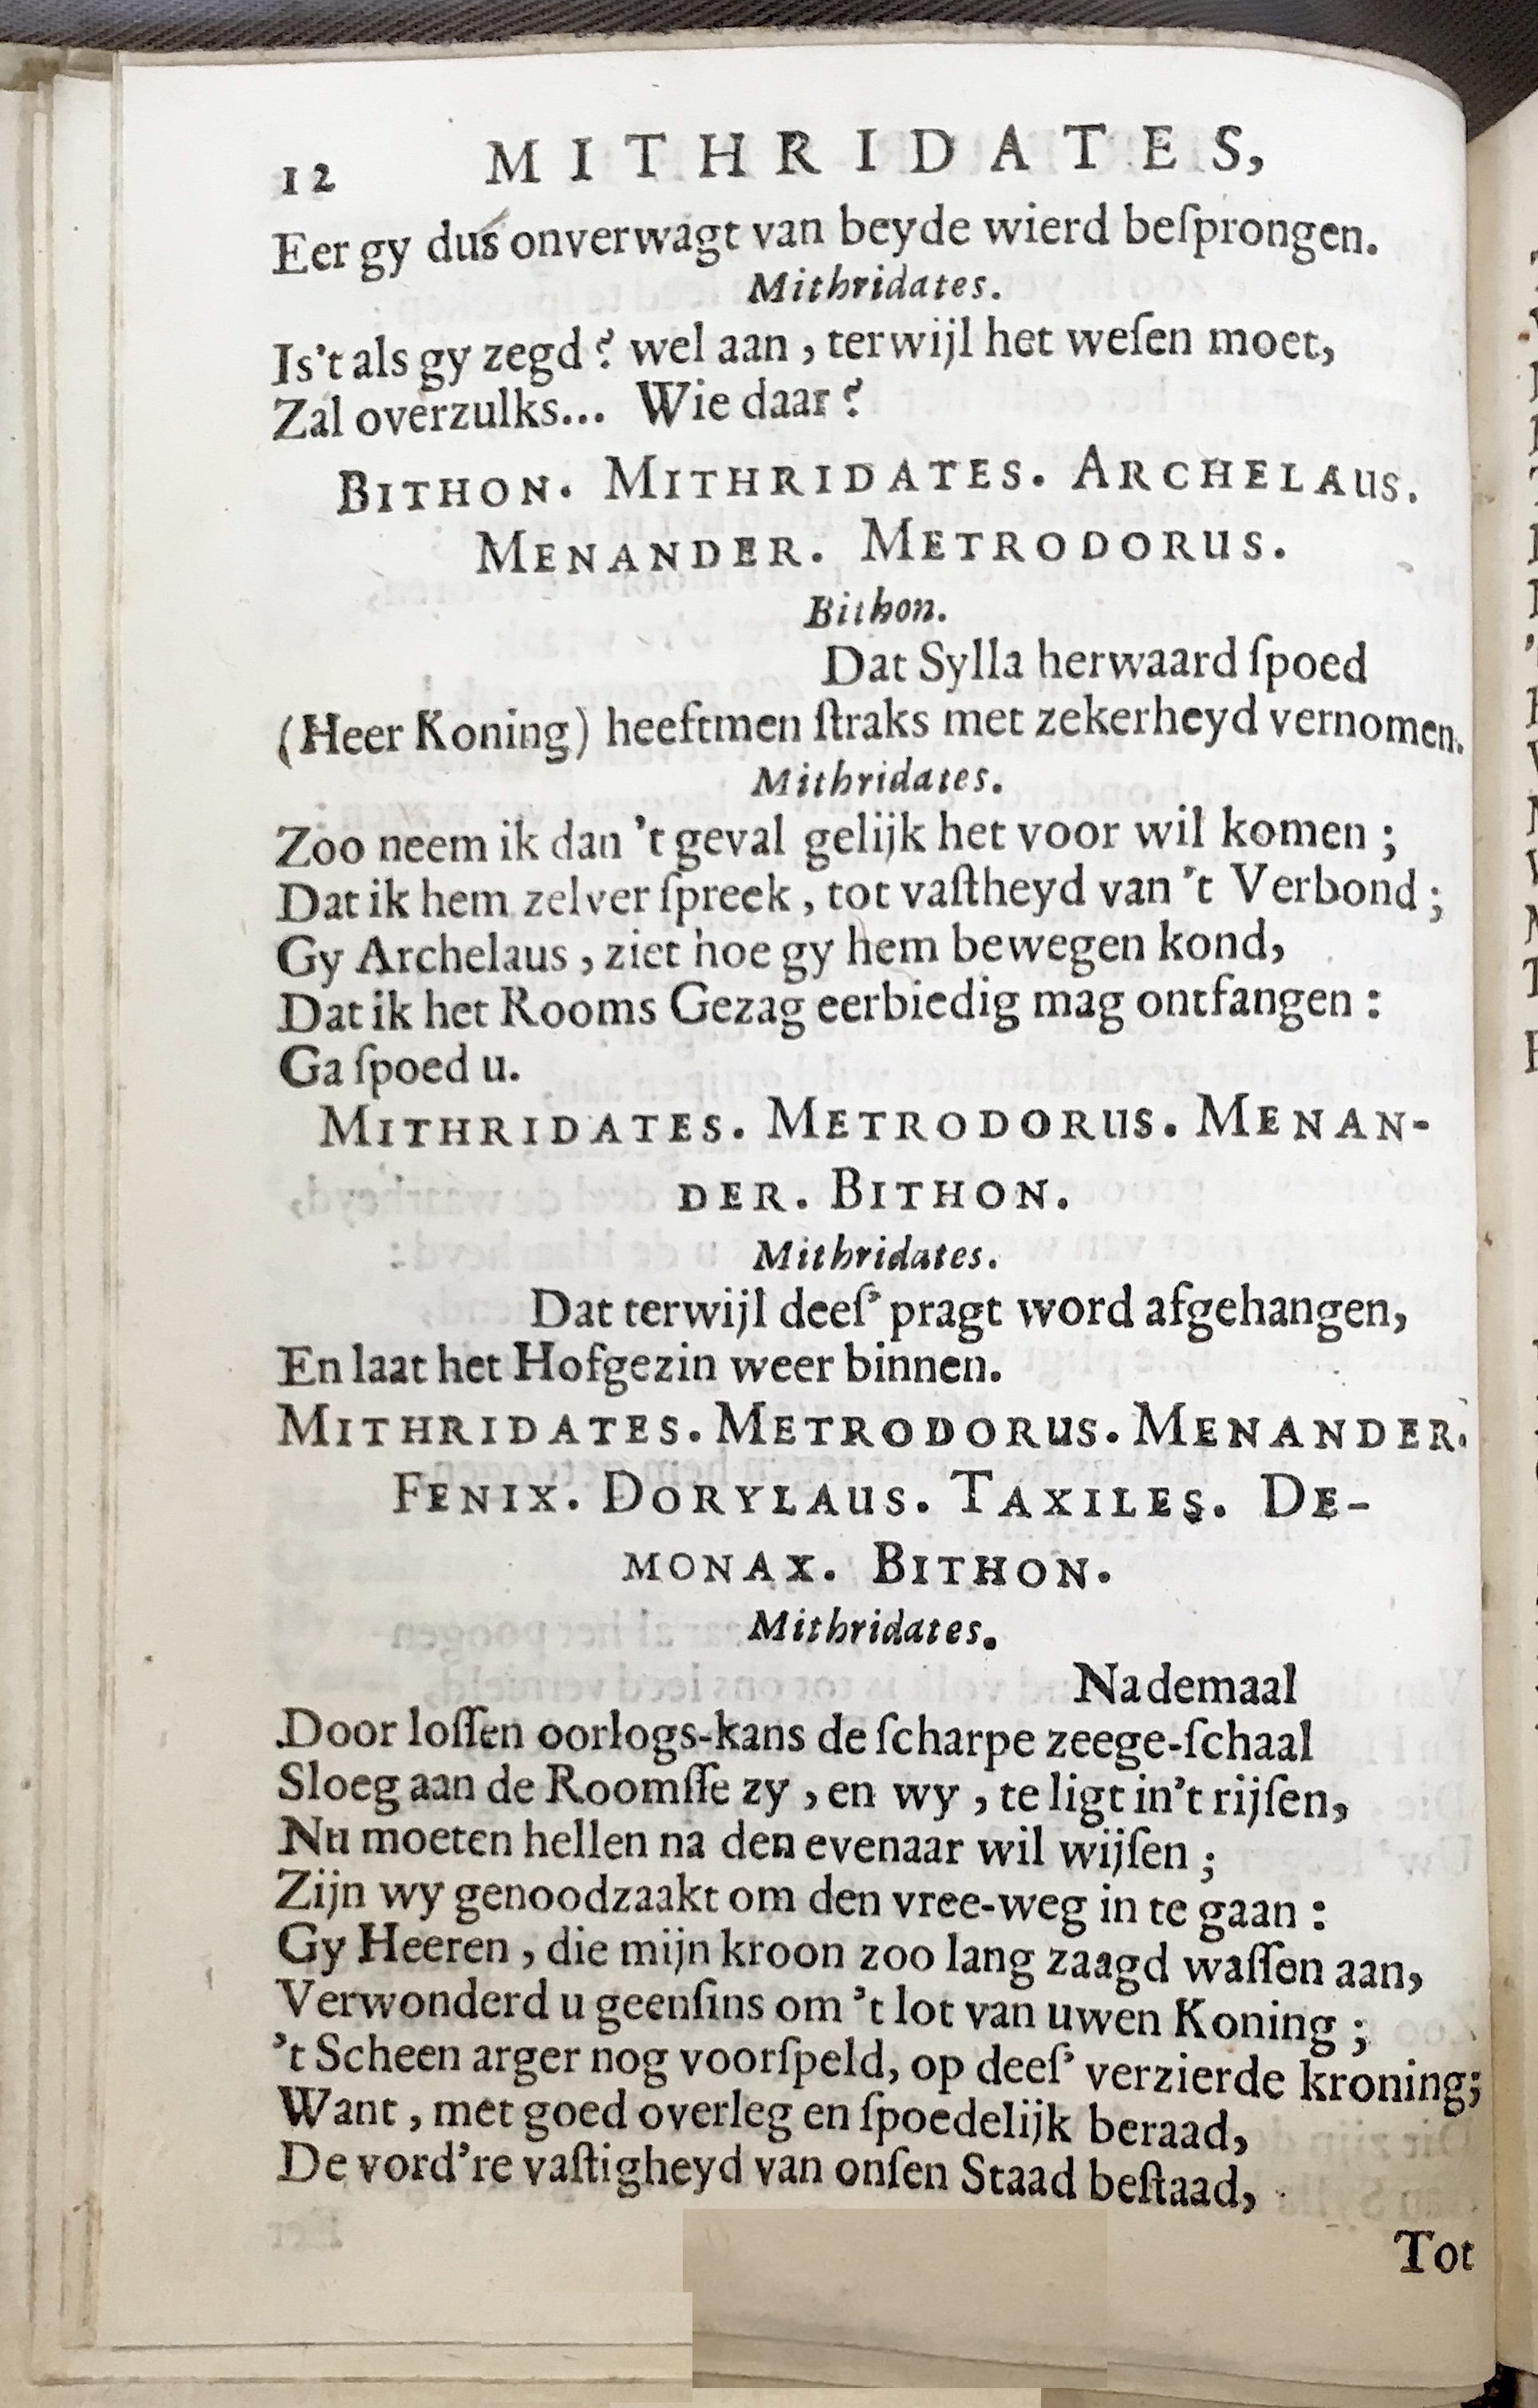 12 MITHRIDATES,
Eer gy dus onverwagt van beyde wierd beſprongen.
Mithridates.
Is't als gy zegd? wel aan, terwijl het weſen moet,
Zal overzulks... Wie daar?
BITHON. MITHRIDATES. ARCHELAUS.
MENANDER. METRODORUS.
Bithon.
Dat Sylla herwaard ſpoed
(Heer Koning) heeftmen ſtraks met zekerheyd vernomen.
Mithridates.
Zoo neem ik dan 't geval gelijk het voor wil komen;
Dat ik hem zelver ſpreek, tot vaſtheyd van 't Verbond;
Gy Archelaus, ziet hoe gy hem bewegen kond,
Dat ik het Rooms Gezag eerbiedig mag ontfangen:
Ga ſpoed u.
MITHRIDATES. METRODORUS. MENAN-
DER. BITHON.
Mithridates.
Dat terwijl deeſ' pragt word afgehangen,
En laat het Hofgezin weer binnen.
MITHRIDATES. METRODORUS. MENANDER.
FENIX. DORYLAUS. TAXILES. DE-
MONAX. BITHON.
Mithridates.
Nademaal
Door loſſen oorlogs-kans de ſcharpe zeege-ſchaal
Sloeg aan de Roomſſe zy, en wy, te ligt in't rijſen,
Nu moeten hellen na den evenaar wil wijſen;
Zijn wy genoodzaakt om den vree-weg in te gaan:
Gy Heeren, die mijn kroon zoo lang zaagd waſſen aan,
Verwonderd u geenſins om 't lot van uwen Koning;
't Scheen arger nog voorſpeld, op deeſ' verzierde kroning;
Want, met goed overleg en ſpoedelijk beraad,
De vord're vaſtigheyd van onſen Staad beſtaad,
Tot